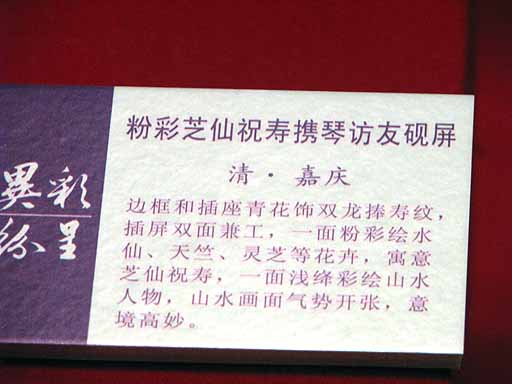 異彩
紛呈
粉彩芝仙祝寿携琴访友砚屏
清·嘉庆
边框和插座青花饰双龙捧寿纹，
插屏双面兼工，一面粉彩绘水
仙、天竺、灵芝等花卉，寓意
芝仙祝寿，一面浅绛彩绘山水
人物，山水画面气势开张，意
境高妙。